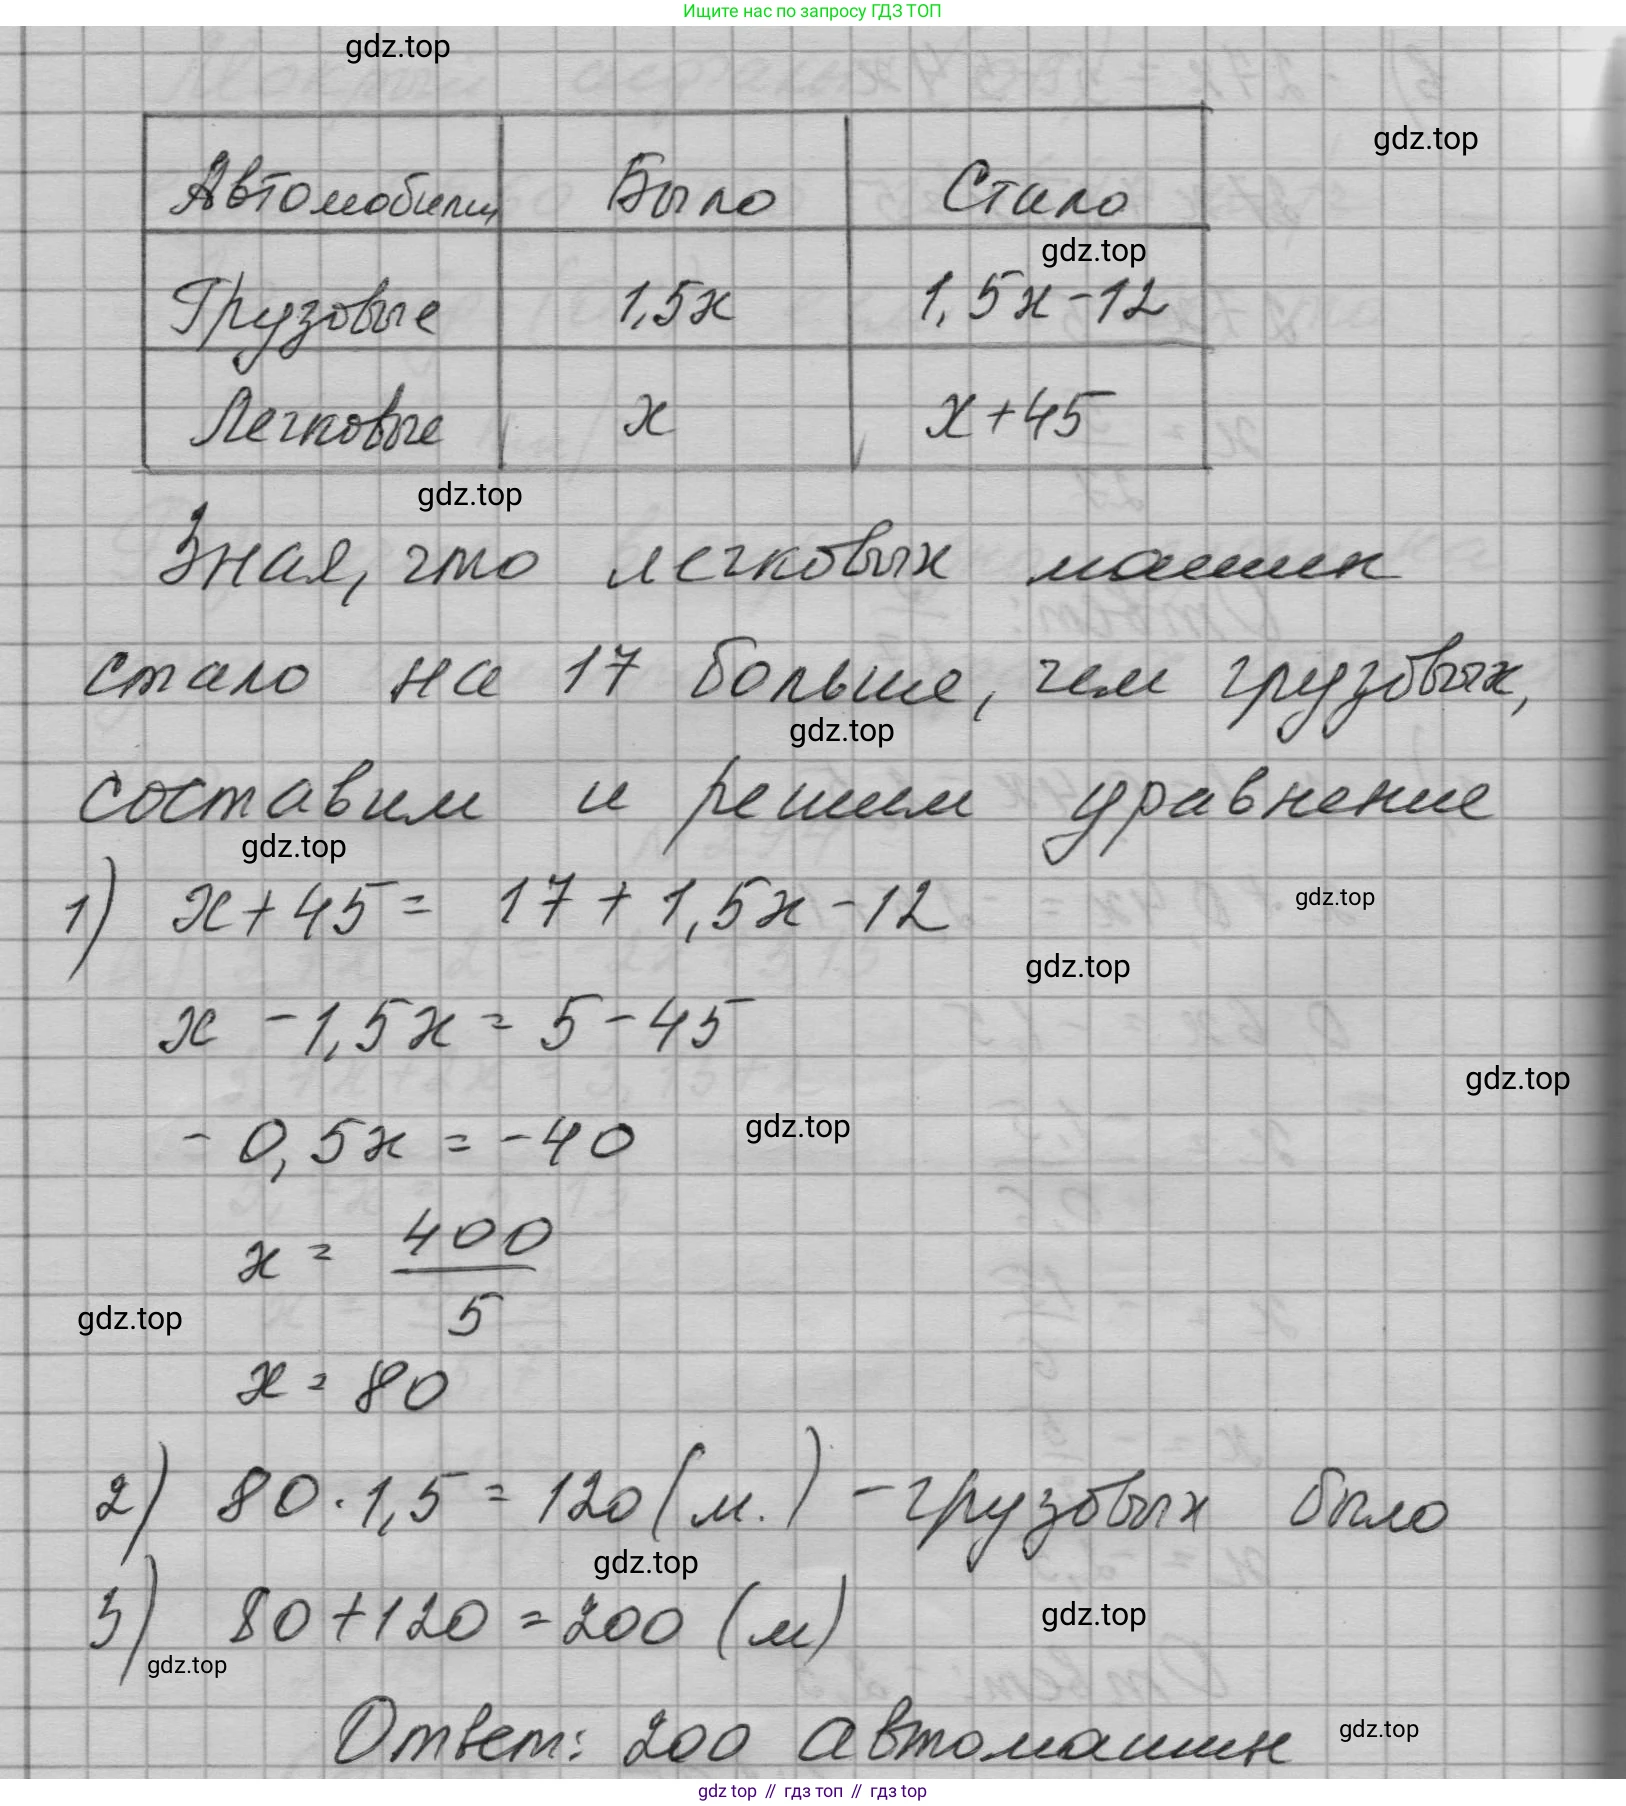 Ищите нас по запросу ГДЗ ТОП
gdz.top
gdz.top
Автомобили Было Стало
gdz.top
Грузовые 1,5х 1,5х-12
Легковые х х+45
gdz.top
Зная, что легковых машин
стало на 17 больше, чем грузовых,
gdz.top
составим и решим уравнение
gdz.top
1) х+45= 17+1,5х-12
gdz.top
gdz.top
х -1,5х = 5-45
gdz.top
- 0,5х = -40
gdz.top
х = 400/5
gdz.top
х = 80
2) 80·1,5 = 120 (м.) - грузовых было
gdz.top
3) 80+120 = 200 (м)
gdz.top
gdz.top
Ответ: 200 автомашин
gdz.top
gdz top // гдз топ // гдз top